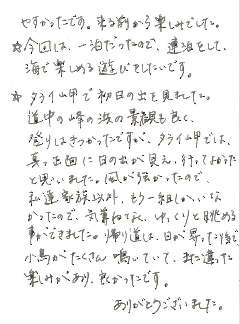 やすかったです。来る前から楽しみでした。
☆今回は、一泊だったので、連泊をして、
海で楽しめる遊びをしたいです。
☆タライ岬で初日の出を見ました。
道中の峰の浜の景観も良く、
登りはきつかったですが、タライ岬では、
真っ正面に日の出が見え、行ってよかった
と思いました。風が強かったので、
私達家族以外、もう一組しかいな
かったので、気兼ねなく、ゆっくりと眺める
事ができました。帰り道は、日が昇った後で
小鳥がたくさん鳴いていて、また違った
楽しみがあり、良かったです。
ありがとうございました。